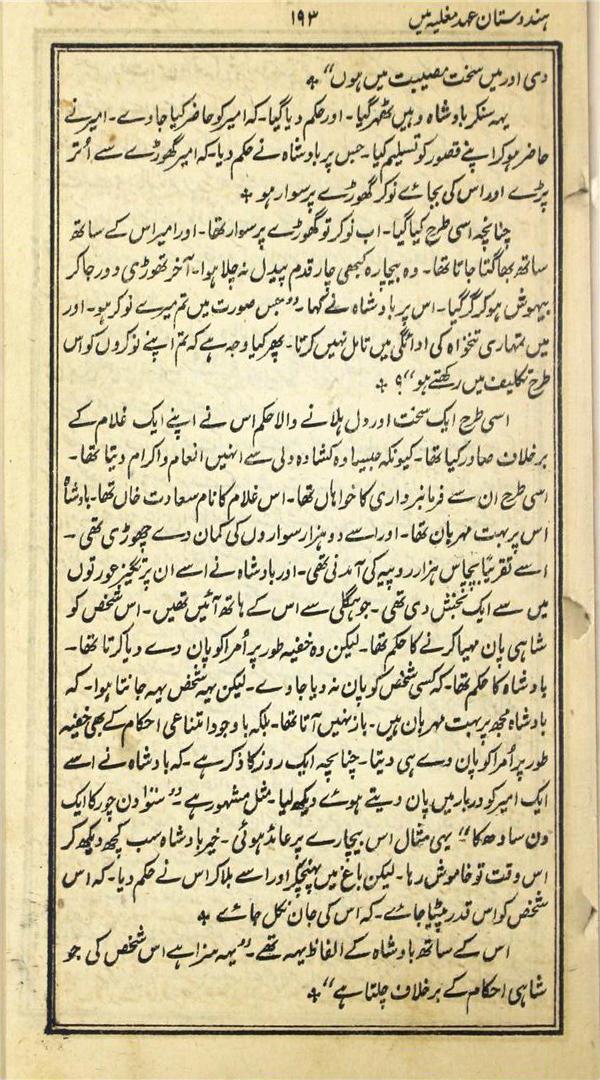 ہندوستان عہد مغلیہ میں ۱۹۳
دی اور میں سخت مصیبت میں ہوں“ ٭
یہہ سنکر بادشاہ وہیں ٹھہر گیا۔ اور حکم دیا گیا۔ کہ امیر کو حاضر کیا جاوے۔ امیر نے
حاضر ہوکر اپنے قصور کو تسلیم کیا۔ جس پر بادشاہ نے حکم دیا۔ کہ امیر گھوڑے سے اُتر
پڑے اور اس کی بجائے نوکر گھوڑے پر سوار ہو ٭
چنانچہ اسی طرح کیا گیا۔ اب نوکر تو گھوڑے پر سوار تھا۔ اور امیر اس کے ساتھ
ساتھ بھاگتا جاتا تھا۔ وہ بیچارہ کبھی چار قدم پیدل نہ چلا ہوا۔ آخر تھوڑی دور جاکر
بیہوش ہوکر گر گیا۔ اس پر بادشاہ نے کہا۔ ”جس صورت میں تم میرے نوکر ہو۔ اور
میں تمہاری تنخواہ کی ادائگی میں تامل نہیں کرتا۔ پھر کیا وجہ ہے کہ تم اپنے نوکروں کو اس
طرح تکلیف میں رکھتے ہو“؟ ٭
اسی طرح ایک سخت اور دل ہلانے والا حکم اس نے اپنے ایک غلام کے
برخلاف صادر کیا تھا۔ کیونکہ جیسا وہ کشادہ دلی سے انہیں انعام و اکرام دیتا تھا۔
اسی طرح ان سے فرمانبرداری کا خواہاں تھا۔ اس غلام کا نام سعادت خاں تھا۔ بادشاہ
اس پر بہت مہربان تھا۔ اور اسے دو ہزار سواروں کی کمان دے چھوڑی تھی۔
اسے تقریباً پچاس ہزار روپیہ کی آمدنی تھی۔ اور بادشاہ نے اسے ان پرتگیز عورتوں
میں سے ایک بخش دی تھی۔ جو ہگلی سے اس کے ہاتھ آئیں تھیں۔ اس شخص کو
شاہی پان مہیا کرنے کا حکم تھا۔ لیکن وہ خفیہ طور پر اُمرا کو پان دے دیا کرتا تھا۔
بادشاہ کا حکم تھا۔ کہ کسی شخص کو پان نہ دیا جاوے۔ لیکن یہہ شخص یہہ جانتا ہوا۔ کہ
بادشاہ مجھ پر بہت مہربان ہیں۔ باز نہیں آتا تھا۔ بلکہ باوجود امتناعی احکام کے بھی خفیہ
طور پر اُمرا کو پان دے ہی دیتا۔ چنانچہ ایک روز کا ذکر ہے۔ کہ بادشاہ نے اسے
ایک امیر کو دربار میں پان دیتے ہوئے دیکھ لیا۔ مثل مشہور ہے۔ ”سو دن چور کا ایک
دن سادھ کا“ یہی مثال اس بیچارے پر عائد ہوئی۔ خیر بادشاہ سب کچھ دیکھ کر
اس وقت تو خاموش رہا۔ لیکن باغ میں پہنچکر اور اسے بلاکر اس نے حکم دیا۔ کہ اس
شخص کو اس قدر پیٹا جائے۔ کہ اس کی جان نکل جائے ٭
اس کے ساتھ بادشاہ کے الفاظ یہہ تھے۔ ”یہہ سزا ہے اس شخص کی جو
شاہی احکام کے برخلاف چلتا ہے“ ٭